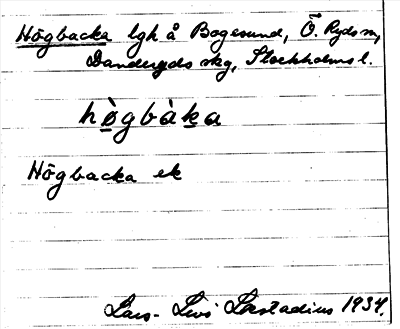 Högbacka lgh å Bogesund, Ö. Ryds sn,
Danderyds skg, Stockholms l.
hògbàka
Högbacka ek
Lars-Levi Læstadius 1934.